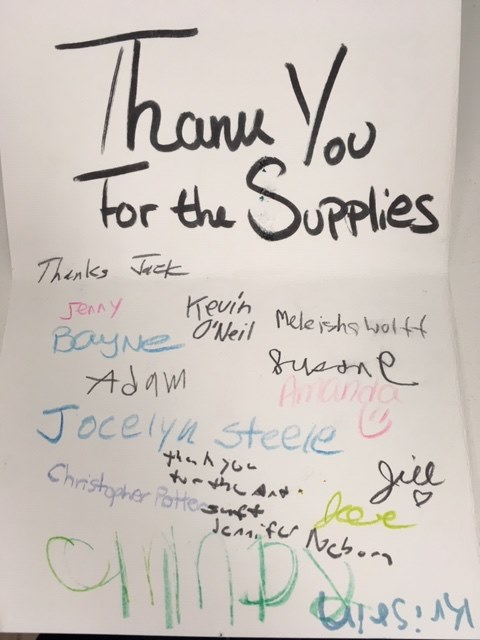 Thank You
For the Supplies
Thanks Jack
Jenny
Kevin
O'Neil
Meleisha Wolff
Bayne
Susane
Adam
Amanda
Jocelyn Steele
thank you
for the Art
stuff
Jennifer Naborn
Jill
Christopher Potter
Cindy
Kristin